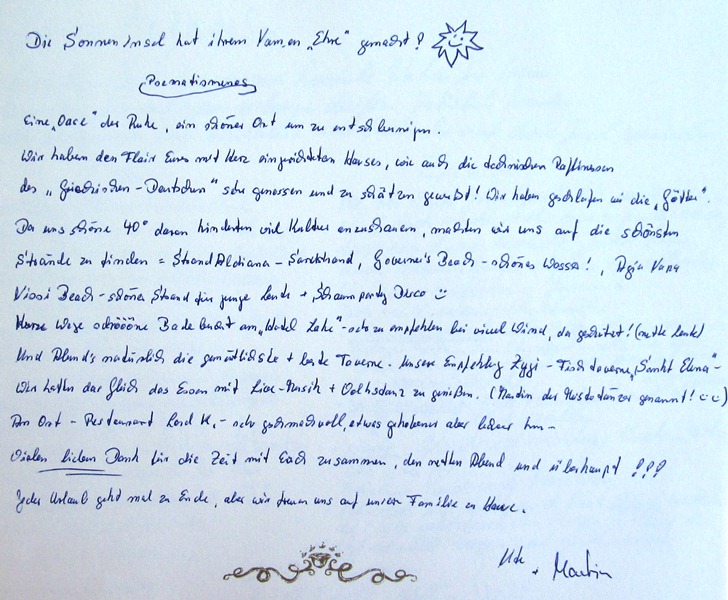 Die Sonneninsel hat ihrem Namen „Ehre" gemacht!
Poematismenes
Eine „Oase" der Ruhe, ein schöner Ort um zu entschleunigen.
Wir haben den Flair Eures mit Herz eingerichteten Hauses, wie auch die technischen Raffinessen
des „Griechischen-Deutschen" sehr genossen und zu schätzen gewusst! Wir haben geschlafen wie die „Götter".
Da uns schöne 40° daran hinderten viel Kultur anzuschauen, machten wir uns auf die schönsten
Strände zu finden = Strand Aldiana - Sandstrand, Governor's Beach - schönes Wasser!, Agia Napa
Nissi Beach - schöner Strand für junge Leute + Schaumparty Disco
Kurze Wege schööööne Badebucht am „Hotel - sehr zu empfehlen bei viel Wind, da geschützt! (nette Leute)
Und Abends natürlich die gemütlichste + beste Taverne. Unsere Empfehlung Zygi - Fischtaverne „Sankt Elena"-
Wir hatten das Glück das Essen mit Live-Musik + Volkstanz zu genießen. (Martin der genannt!
Im Ort - Restaurant Lord K. - sehr geschmackvoll, etwas gehobener aber
Vielen lieben Dank für die Zeit mit Euch zusammen, den netten Abend und überhaupt !!!
Jeder Urlaub geht mal zu Ende, aber wir freuen uns auf unsere Familie zu Hause.
Ute + Martin